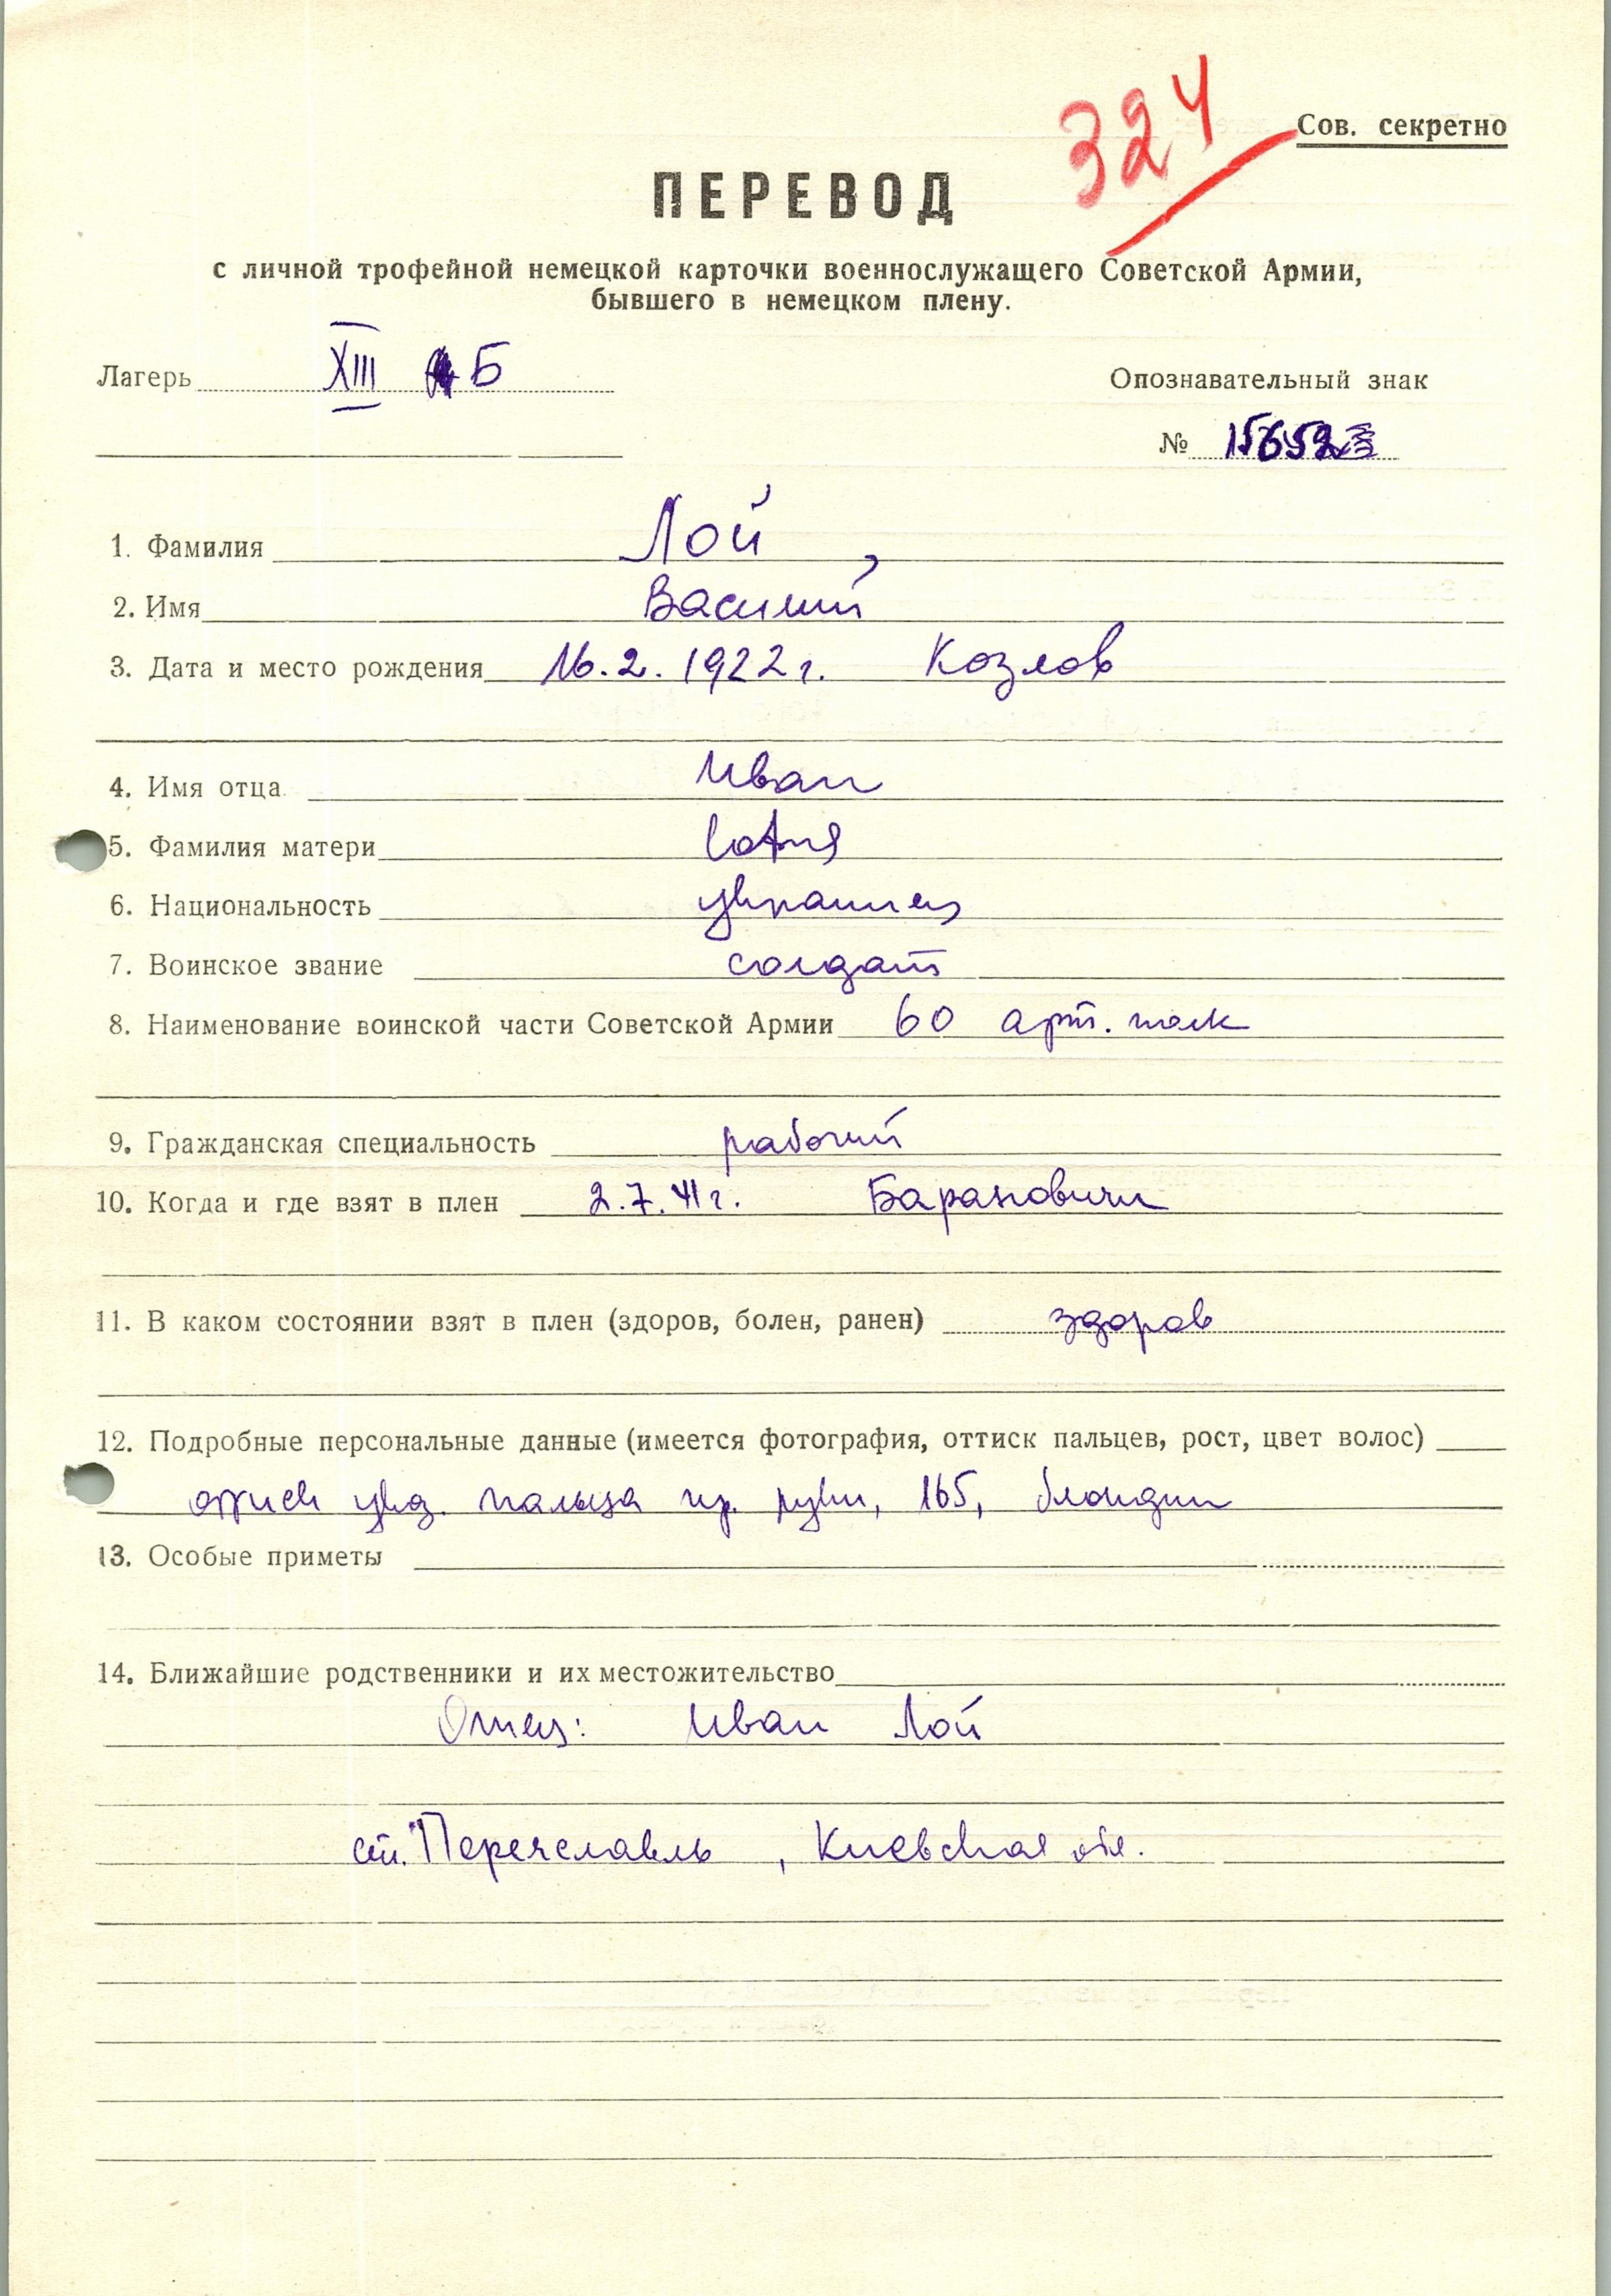 324
Сов. секретно
ПЕРЕВОД
с личной трофейной немецкой карточки военнослужащего Советской Армии,
бывшего в немецком плену.
Лагерь XIII Б
Опознавательный знак
№ 15652
1. Фамилия Лой
2. Имя Василий
3. Дата и место рождения 16.2.1922г. Козлов
4. Имя отца Иван
5. Фамилия матери
6. Национальность украинец
7. Воинское звание солдат
8. Наименование воинской части Советской Армии 60 арт. полк
9. Гражданская специальность рабочий
10. Когда и где взят в плен 2.7.41г. Барановичи
11. В каком состоянии взят в плен (здоров, болен, ранен) здоров
12. Подробные персональные данные (имеется фотография, оттиск пальцев, рост, цвет волос)
оттиск указ. пальца пр. руки, 165, блондин
13. Особые приметы
14. Ближайшие родственники и их местожительство
Отец: Иван Лой
ст. Переяславль, Киевская обл.